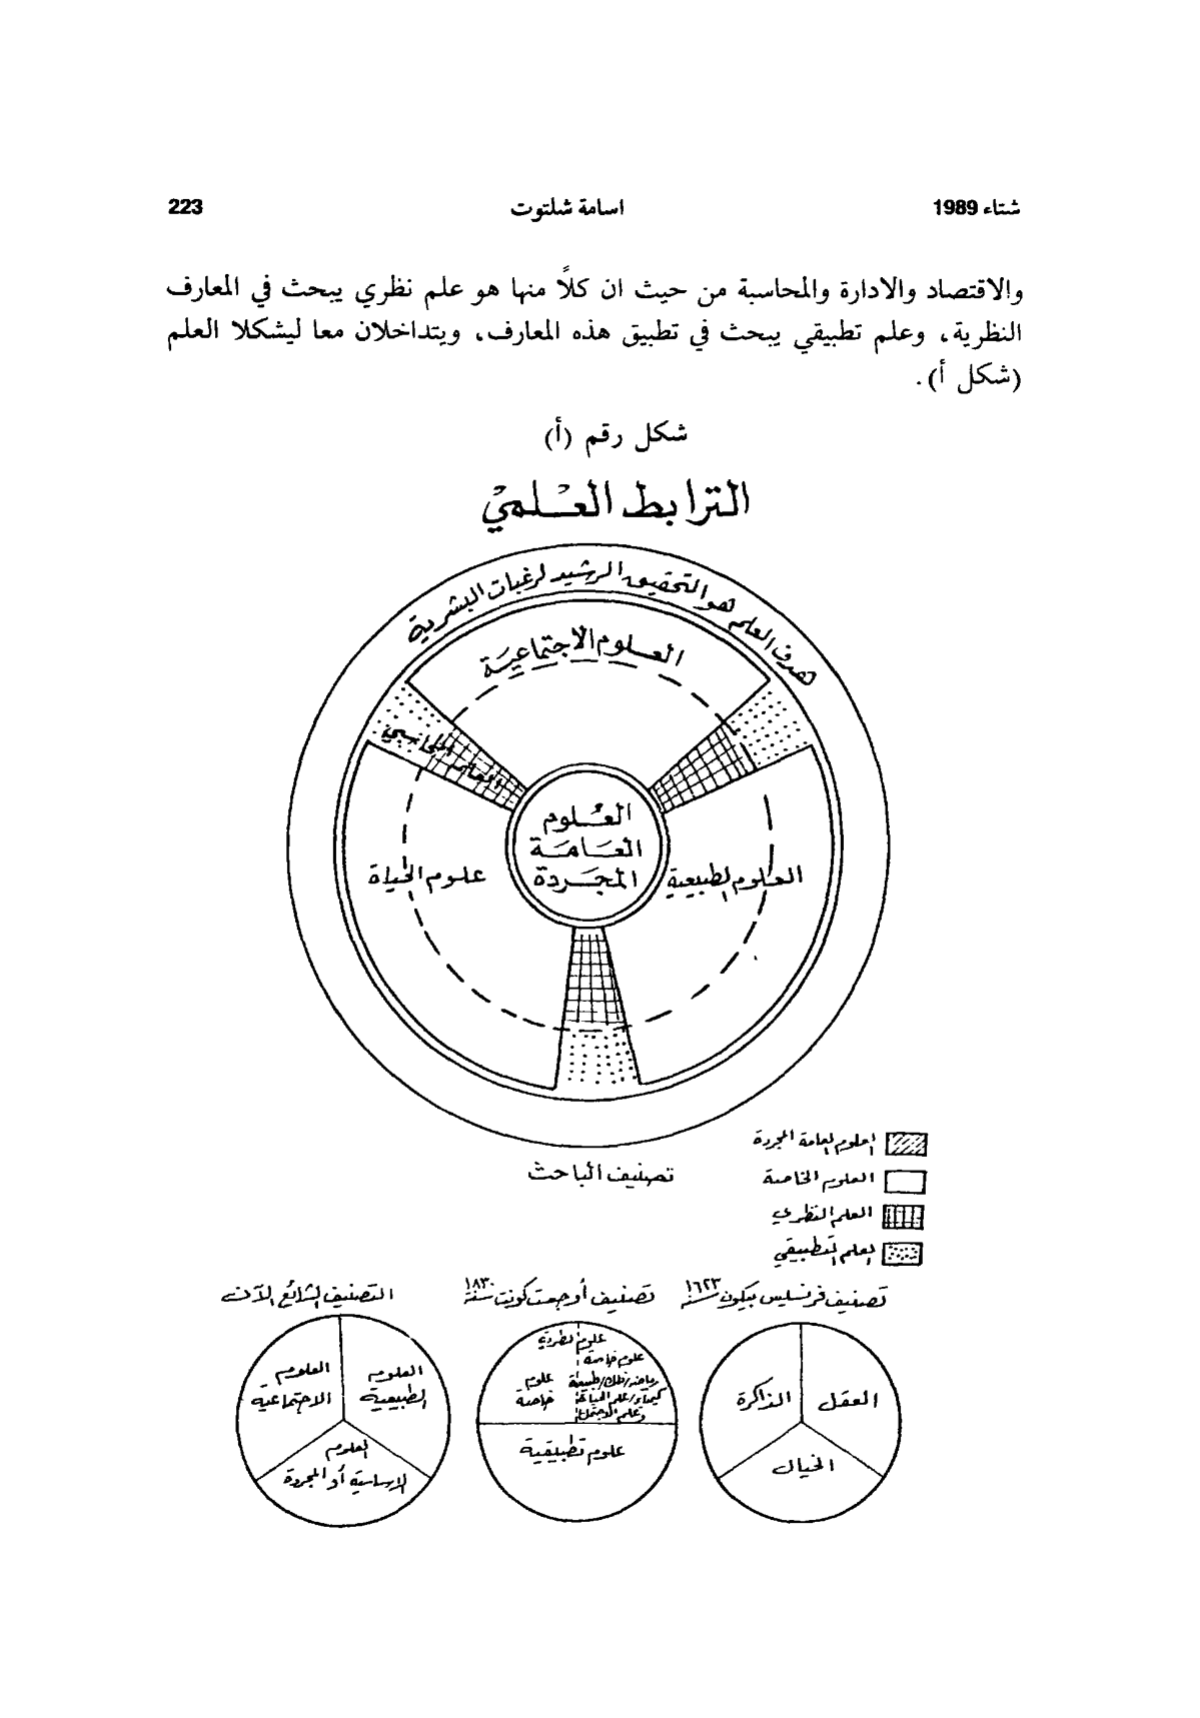 شتاء 1989
اسامة شلتوت
223
والاقتصاد والادارة والمحاسبة من حيث ان كلاً منها هو علم نظري يبحث في المعارف
النظرية، وعلم تطبيقي يبحث في تطبيق هذه المعارف، ويتداخلان معا ليشكلا العلم
(شكل أ).
شكل رقم (أ)
الترابط العلمي
هدف العلم هو التحقيق الرشيد لرغبات البشرية
العلوم الاجتماعية
العلم المحاسبي
العلوم
العامة
المجردة
العلوم الطبيعية
علوم الحياة
العلوم العامة المجردة
العلوم الخاصة
العلم النظري
العلم التطبيقي
تصنيف الباحث
تصنيف فرنسيس بيكون سنة ١٦٢٣
العقل
الذاكرة
الخيال
تصنيف أوجست كونت سنة ١٨٣٠
علوم نظرية
علوم خاصة
رياضة/فلك/طبيعة
كيمياء/علم الحياة
وعلم الاجتماع
علوم
خاصة
علوم تطبيقية
التصنيف الشائع الآن
العلوم
الطبيعية
العلوم
الاجتماعية
العلوم
الاساسية أو المجردة